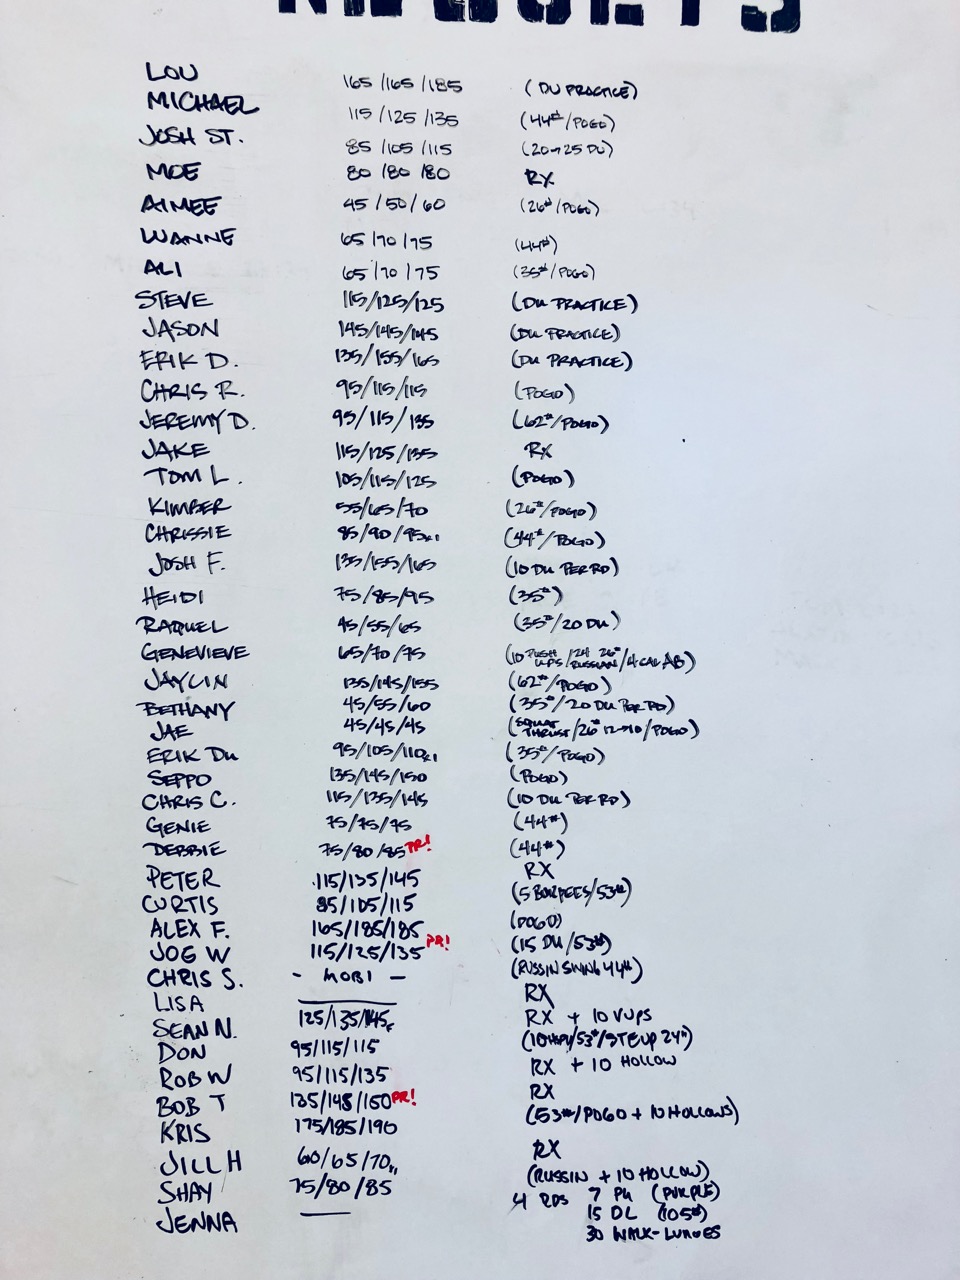 LOU 165/165/185 (DU PRACTICE)
MICHAEL 115/125/135 (44#/POGO)
JOSH ST. 85/105/115 (20→25 DU)
MOE 80/80/80 RX
AIMEE 45/50/60 (26#/POGO)
LUANNE 65/70/75 (44#)
ALI 65/70/75 (35#/POGO)
STEVE 115/125/125 (DU PRACTICE)
JASON 145/145/145 (DU PRACTICE)
ERIK D. 135/155/165 (DU PRACTICE)
CHRIS R. 95/115/115 (POGO)
JEREMY D. 95/115/135 (62#/POGO)
JAKE 115/125/135 RX
TOM L. 105/115/125 (POGO)
KIMBER 55/65/70 (26#/POGO)
CHRISSIE 85/90/95x1 (44#/POGO)
JOSH F. 135/155/165 (10 DU PER RD)
HEIDI 75/85/95 (35#)
RAQUEL 45/55/65 (35#/20 DU)
GENEVIEVE 65/70/75 (10 PUSH UPS/24 26# RUSSIAN/4 CAL AB)
JAYLIN 135/145/155 (62#/POGO)
BETHANY 45/55/60 (35#/20 DU PER RD)
JAE 45/45/45 (SQUAT THRUST/26# 12→10/POGO)
ERIK DU 95/105/110x1 (35#/POGO)
SEPPO 135/145/150 (POGO)
CHRIS C. 115/135/145 (10 DU PER RD)
GENIE 75/75/75 (44#)
DEBBIE 75/80/85 PR! (44#)
PETER 115/135/145 RX
CURTIS 85/105/115 (5 BURPEES/53#)
ALEX F. 165/185/185 (POGO)
JOG W 115/125/135 PR! (15 DU/53#)
CHRIS S. - MOBI - (RUSSIN SWING 44#)
LISA —— RX
SEAN N. 125/135/145 RX + 10 VUPS
DON 95/115/115 (10 /53#/STEUP 24")
ROB W 95/115/135 RX + 10 HOLLOW
BOB T 135/148/150 PR! RX
KRIS 175/185/190 (53#/POGO + 10 HOLLOWS)
JILL H 60/65/70 RX
SHAY 75/80/85 (RUSSIN + 10 HOLLOW)
JENNA —— 4 RDS 7 PU (PURPLE)
15 DL (105#)
30 WALK-LUNGES